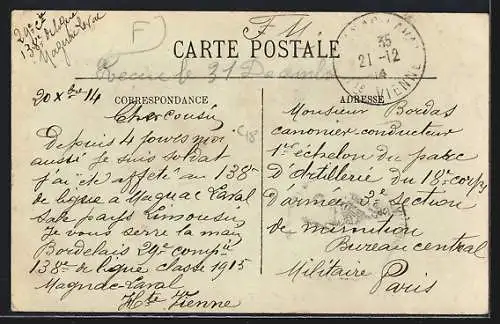 29e Cie
138e de ligne
Magnac Laval
F
F.M.
CARTE POSTALE
Recue le 31 Décembre
35
21-12
14
VIENNE
20 Xbre 14
CORRESPONDANCE
ADRESSE
Cher cousin
Depuis 4 jours moi
aussi je suis soldat
j'ai été affeté au 138e
de ligne a Magnac Laval
Sale pays Limousin
Je vous serre la main
Bordelais 29e compie
138e de ligne classe 1915
Magnac-Laval
Hte Vienne
C18
Monsieur Bordas
canonier conducteur
1er échelon du parc
D'Artillerie du 18e corps
d'armée 3e section
de munition
Bureau central
Militaire Paris